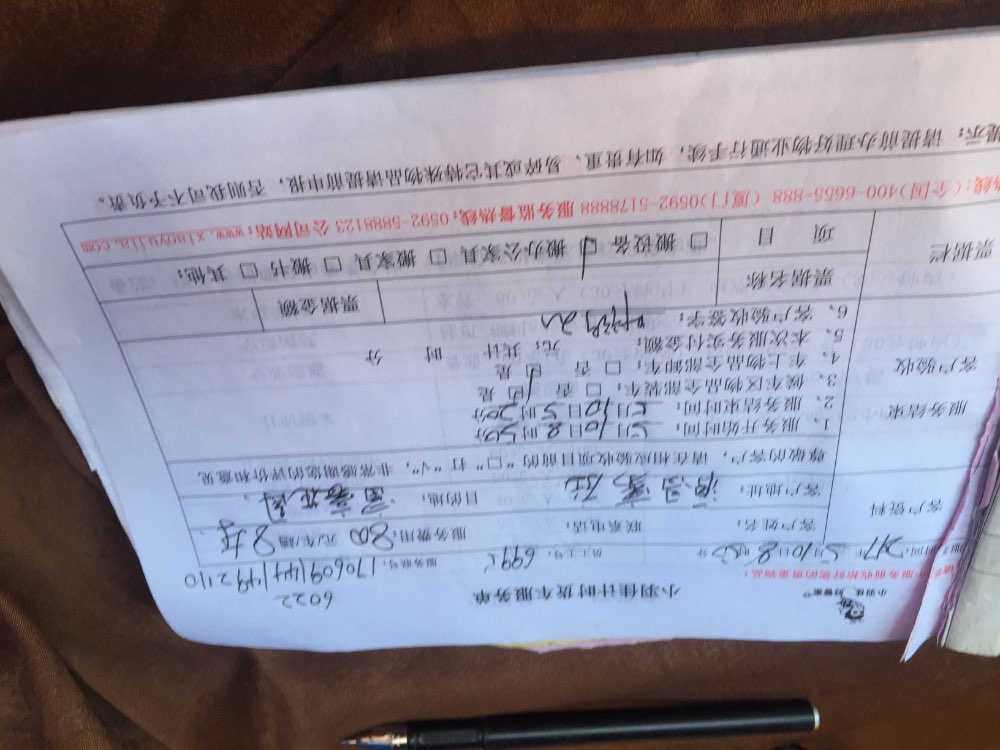 小羽佳计时虎车服务单
6022
小羽佳
服务单号：17609144149 2110
员工工号：699
5月10日8时50分
客户资料
客户姓名：
联系电话：
服务费用：800 元/车/趟 8车
客户地址：
目的地：
尊敬的客户，请在相应验收项目前的“□”打“√”，非常感谢您的评价和意见
服务结束
客户验收
1、服务开始时间：5月10日8时50分
2、服务结束时间：5月10日5时20分
3、候车区物品全部装车：□ 否 □ 是
4、车上物品全部卸车：□ 否 □ 是
5、本次服务实付金额： 元，共计 时 分
6、客户验收签字：
票据栏
票据名称
票据金额
项 目
□ 搬设备 □ 搬办公家具 □ 搬家具 □ 搬书 □ 其他：
热线：(全国)400-6655-888 (厦门)0592-5178888 服务监督热线：0592-5888123 公司网站：www.xiaoyujia.com
提示：请提前办理好物业通行手续，如有贵重、易碎或其它特殊物品请提前申报，否则我司不予负责。